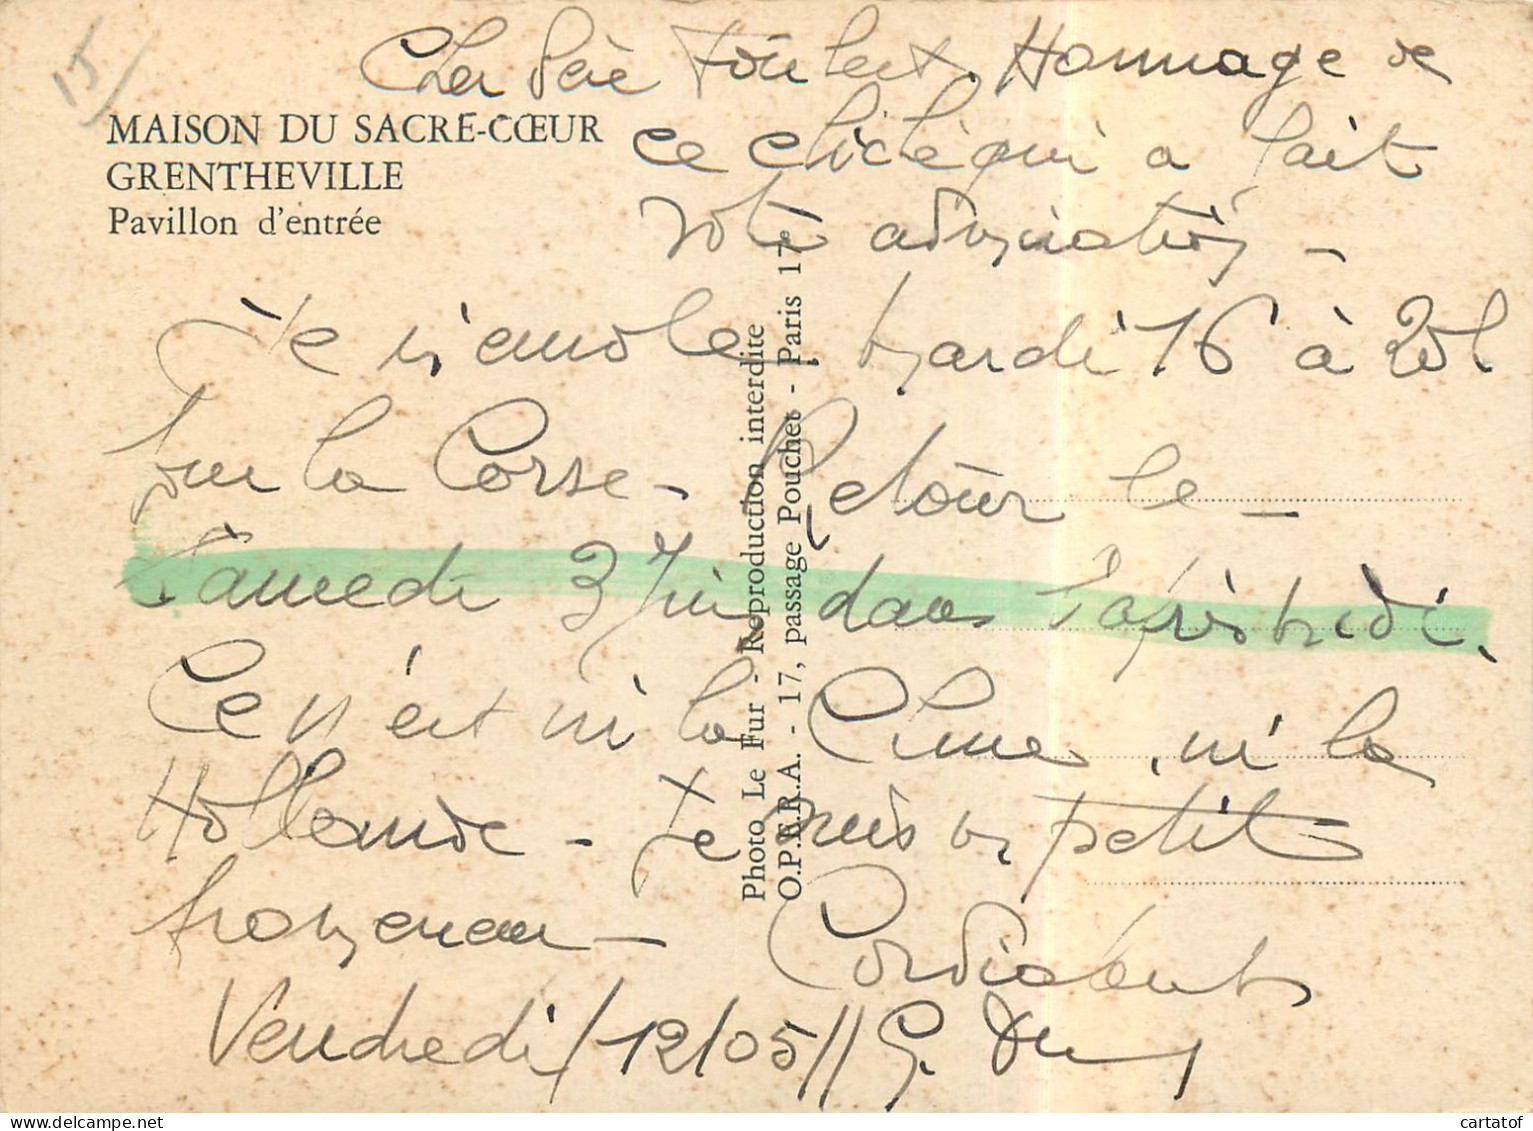 15
Cher Père Hommage de
MAISON DU SACRÉ-CŒUR
GRENTHEVILLE
Pavillon d'entrée
ce cliché qui a fait
votre admiration -
Je m'envole mardi 16 à 20h
sur la Corse - Retour le -
Samedi 3 Juin dans l'après midi.
Ce n'est ni la Chine, ni la
Hollande - Je suis un petit
moyeneur - Cordialement
Vendredi/12/05// G.
Photo Le Fur - Reproduction interdite
O.P.E.R.A. - 17, passage Pouchet - Paris 17e
cartatof